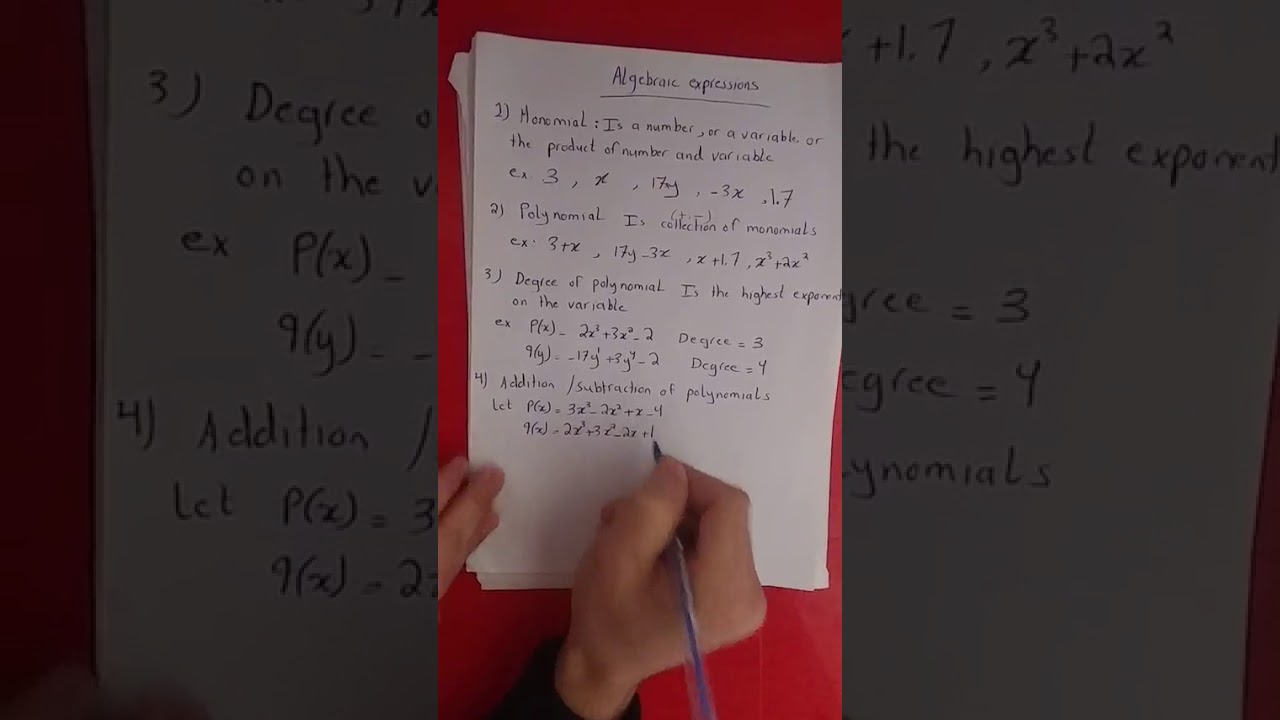 Algebraic expressions
1) Monomial : Is a number, or a variable, or
the product of number and variable
ex: 3 , x , 17y , -3x , 1.7
2) Polynomial Is collection of monomials
(+, -)
ex: 3+x , 17y-3x , x+1.7 , x³+2x²
3) Degree of polynomial Is the highest exponent
on the variable
ex P(x) = 2x³+3x²-2 Degree = 3
q(y) = -17y¹+3y⁴-2 Degree = 4
4) Addition /subtraction of polynomials
Let P(x) = 3x³-2x²+x-4
q(x) = 2x³+3x²-2x+1